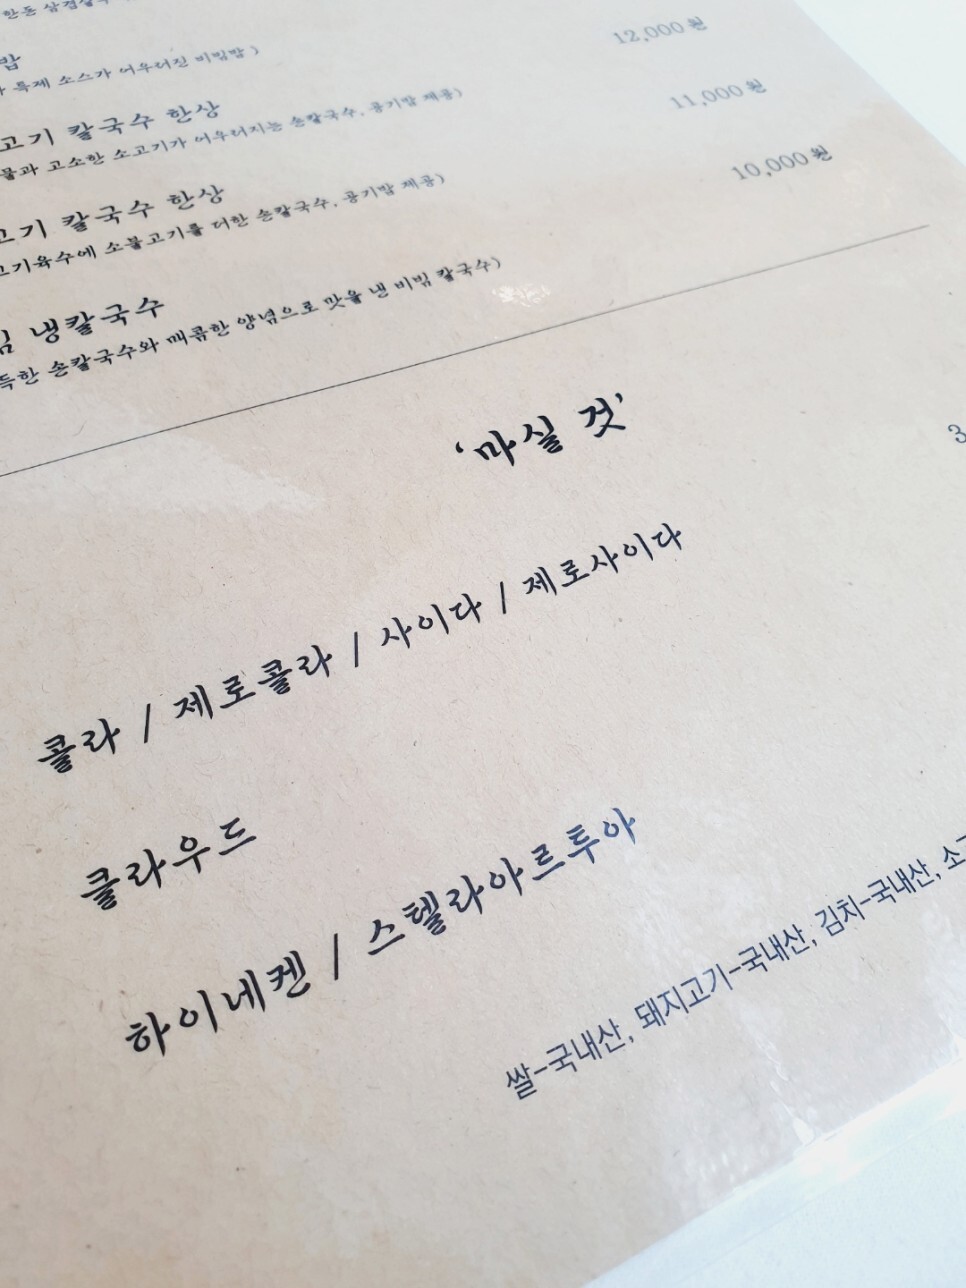 한돈 삼겹살
밥
특제 소스가 어우러진 비빔밥 )
12,000 원
고기 칼국수 한상
물과 고소한 소고기가 어우러지는 손칼국수, 공기밥 제공)
11,000 원
고기 칼국수 한상
고기육수에 소불고기를 더한 손칼국수, 공기밥 제공)
10,000 원
냉칼국수
득한 손칼국수와 매콤한 양념으로 맛을 낸 비빔 칼국수)
‘마실 것’
콜라 / 제로콜라 / 사이다 / 제로사이다
3
클라우드
하이네켄 / 스텔라아르투아
쌀-국내산, 돼지고기-국내산, 김치-국내산,